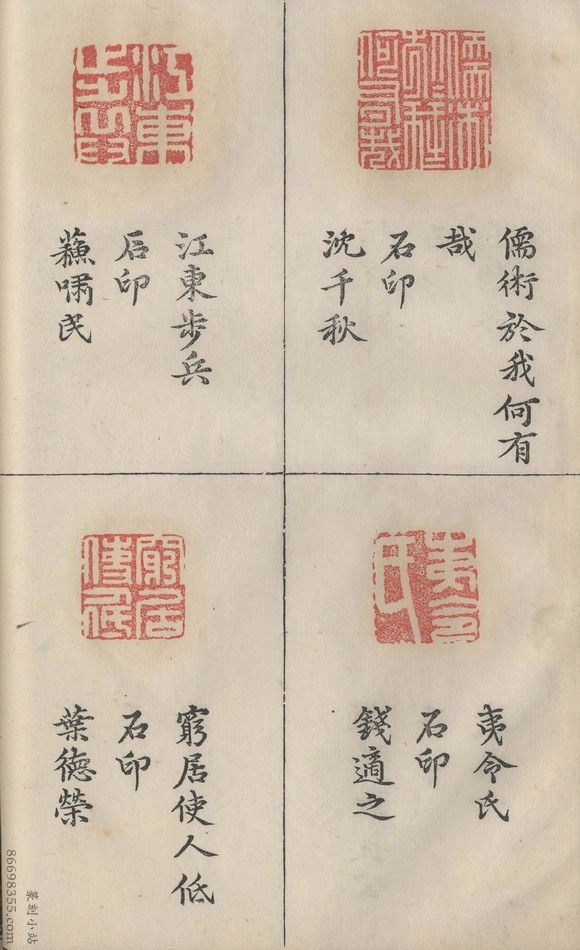 儒術於我何有
哉
石印
沈千秋
江東步兵
石印
蘓嘯民
夷令氏
石印
錢適之
窮居使人低
石印
葉德榮
篆刻小站
86698355.com